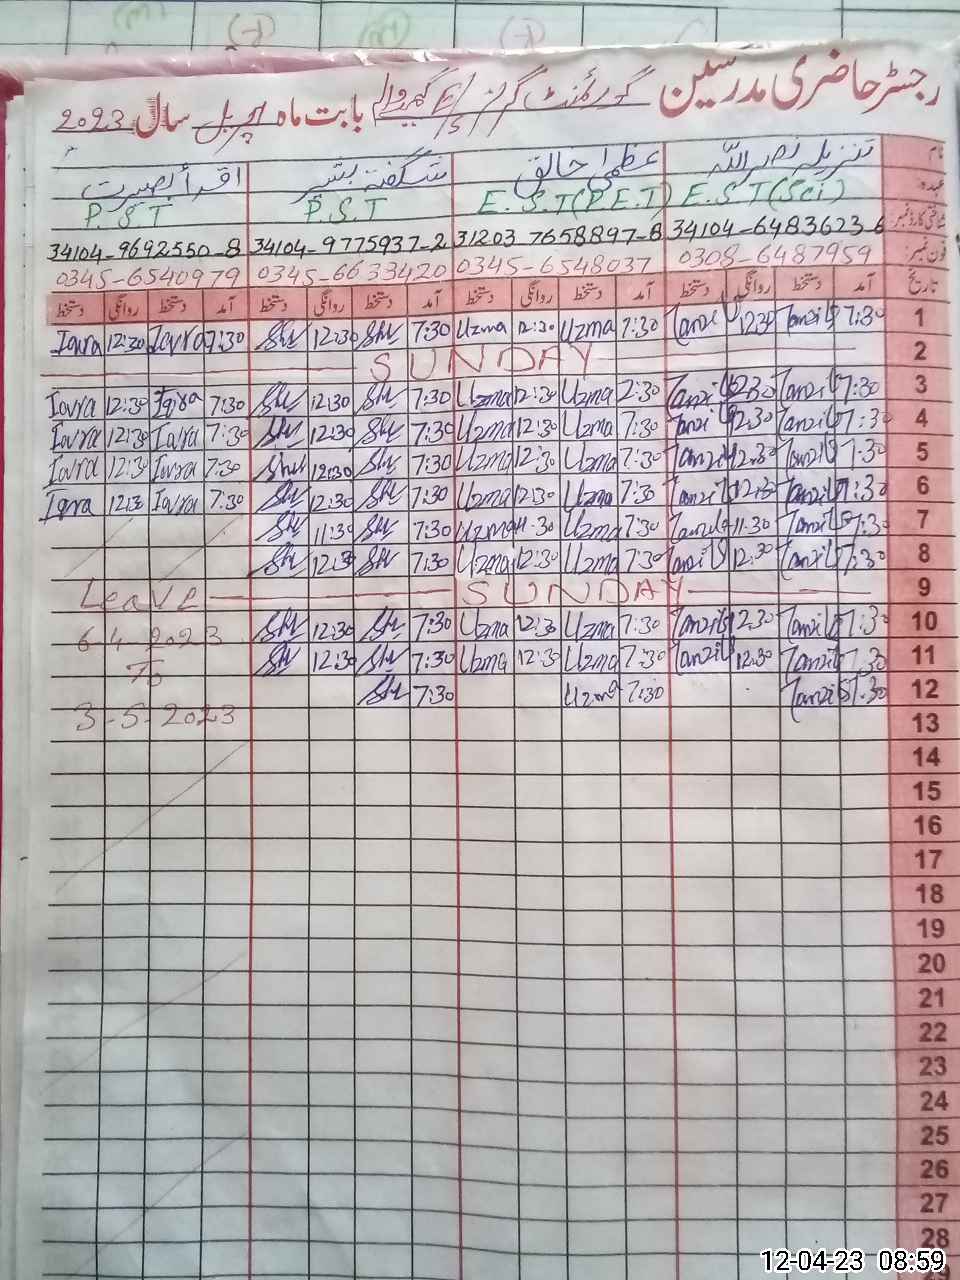 رجسٹر حاضری مدرسین گورنمنٹ گرلز E/S بابت ماہ اپریل سال 2023
نام تنزیلہ نصر اللہ عظمیٰ خالق شگفتہ بشیر اقرأ بصیرت
عہدہ E.S.T(Sci) E.S.T(P.E.T) P.S.T P.S.T
شناختی کارڈ نمبر 34104-6483623-6 31203 7658897-8 34104-9775937-2 34104-9692550-8
فون نمبر 0308-6487959 0345-6548037 0345-6633420 0345-6540979
تاریخ آمد دستخط روانگی دستخط آمد دستخط روانگی دستخط آمد دستخط روانگی دستخط آمد دستخط روانگی دستخط
1 7:30 Tanzil 12:30 Tanzil 7:30 Uzma 12:30 Uzma 7:30 Shu 12:30 Shu 7:30 Iqra 12:30 Iqra
2 SUNDAY
3 7:30 Tanzil 12:30 Tanzil 7:30 Uzma 12:30 Uzma 7:30 Shu 12:30 Shu 7:30 Iqra 12:30 Iqra
4 7:30 Tanzil 12:30 Tanzil 7:30 Uzma 12:30 Uzma 7:30 Shu 12:30 Shu 7:30 Iqra 12:30 Iqra
5 7:30 Tanzil 12:30 Tanzil 7:30 Uzma 12:30 Uzma 7:30 Shu 12:30 Shu 7:30 Iqra 12:30 Iqra
6 7:30 Tanzil 12:30 Tanzil 7:30 Uzma 12:30 Uzma 7:30 Shu 12:30 Shu 7:30 Iqra 12:30 Iqra
7 7:30 Tanzil 11:30 Tanzil 7:30 Uzma 11:30 Uzma 7:30 Shu 11:30 Shu
8 7:30 Tanzil 12:30 Tanzil 7:30 Uzma 12:30 Uzma 7:30 Shu 12:30 Shu
9 SUNDAY Leave
10 7:30 Tanzil 12:30 Tanzil 7:30 Uzma 12:30 Uzma 7:30 Shu 12:30 Shu 6-4-2023
11 7:30 Tanzil 12:30 Tanzil 7:30 Uzma 12:30 Uzma 7:30 Shu 12:30 Shu To
12 7:30 Tanzil 7:30 Uzma 7:30 Shu 3-5-2023
13
14
15
16
17
18
19
20
21
22
23
24
25
26
27
28
29
12-04-23 08:59